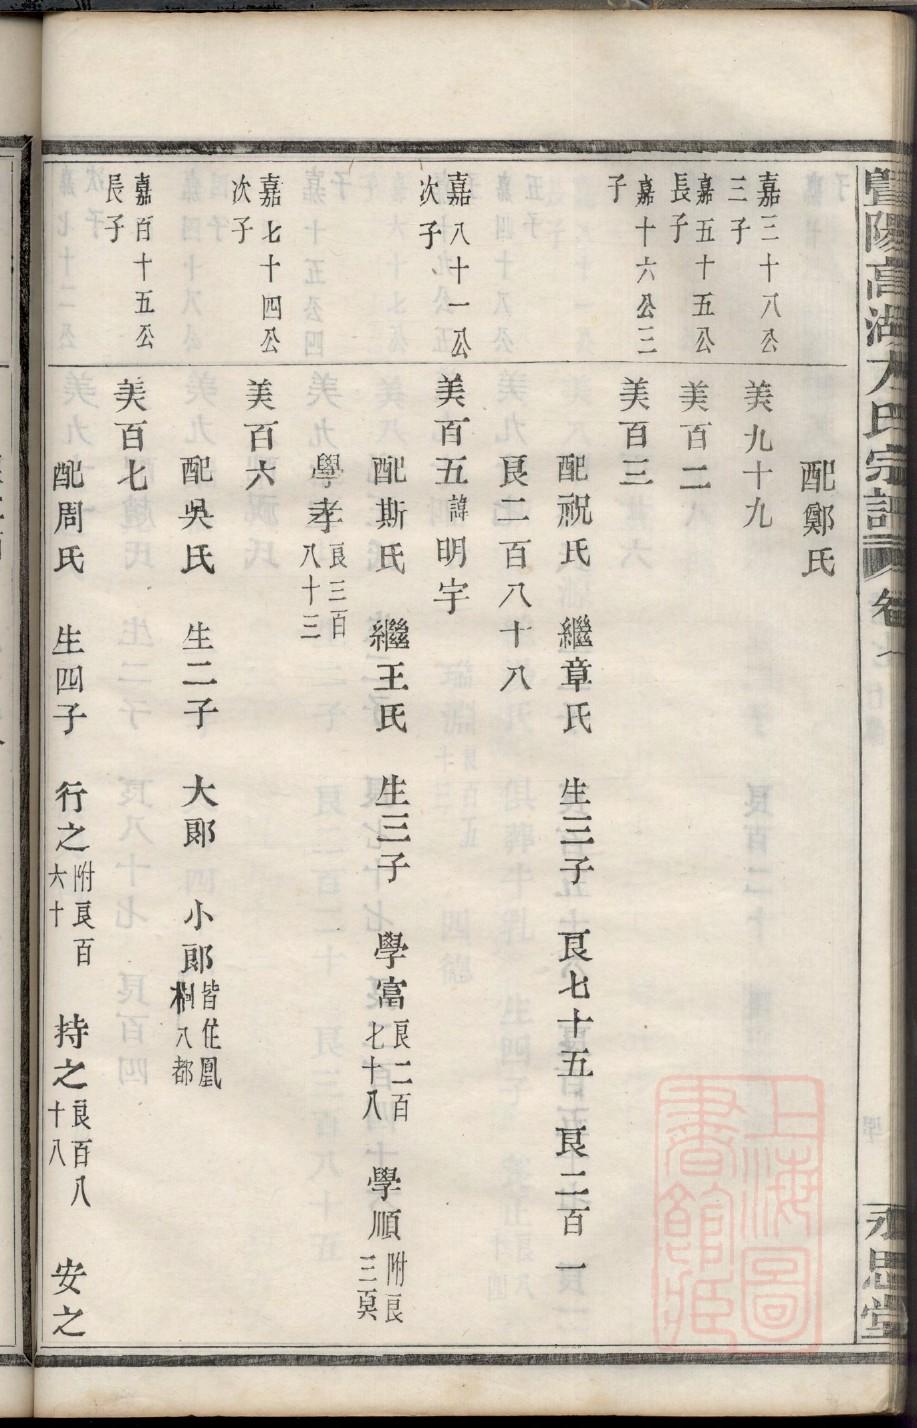 暨陽高湖方氏宗譜 卷
永思堂
配鄭氏
嘉三十八公三子
美九十九
嘉五十五公長子
美百二
嘉十六公三子
美百三
配祝氏 繼章氏 生三子 艮七十五 艮二百一
艮二百八十八
嘉八十一公次子
美百五諱明宇
配斯氏 繼王氏 生三子 學富艮二百七十八 學順附艮三百
學孝艮三百八十三
嘉七十四公次子
美百六
配吳氏 生二子 大郎 小郎皆住鳳桐八都
嘉百十五公長子
美百七
配周氏 生四子 行之附艮百六十 持之艮百八十八 安之
上海圖書館藏